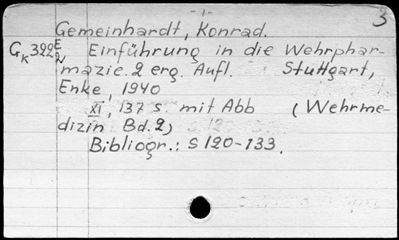 3
Gemeinhardt, Konrad.
Gk 322 E2 Einführung in die Wehrphar-
mazie. 2 erg. Aufl. Stuttgart,
Enke, 1940
XI, 137 S mit Abb (Wehrme-
dizin Bd. 2)
Bibliogr.: S 120-133.